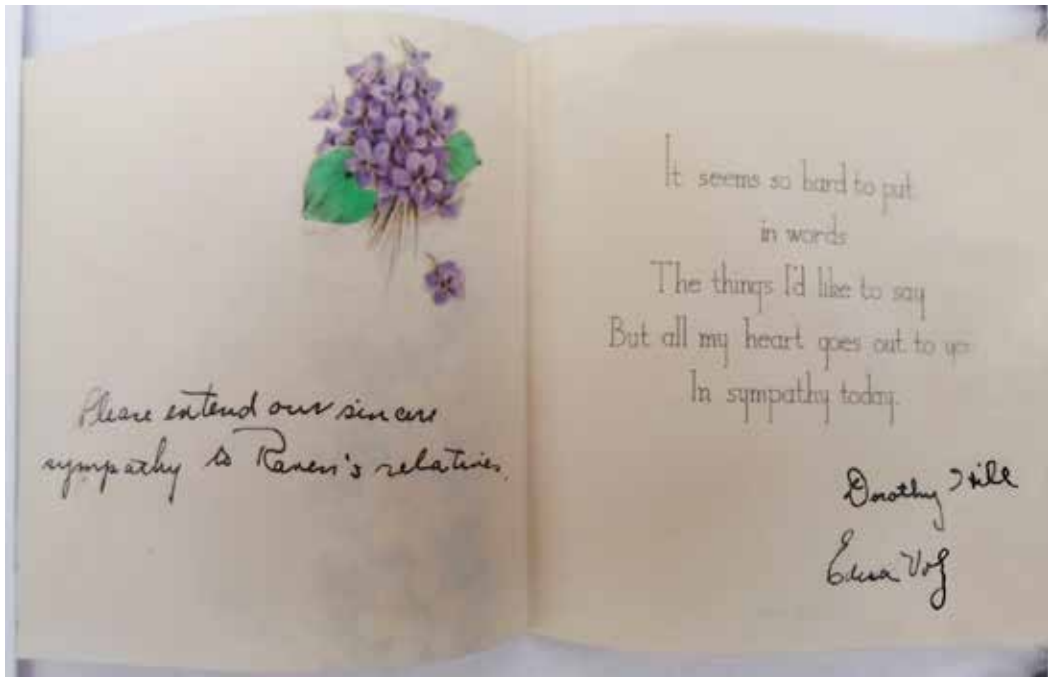 Please extend our sincere
sympathy to Raven's relatives.
It seems so hard to put
in words
The things I'd like to say
But all my heart goes out to you
In sympathy today.
Dorothy Hill
Edna